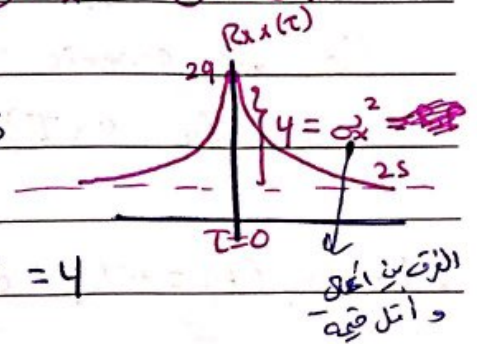 Rxx(τ)
29
4 = σx² =
25
τ=0
= 4
الفرق بين أعلى
و أقل قيمة